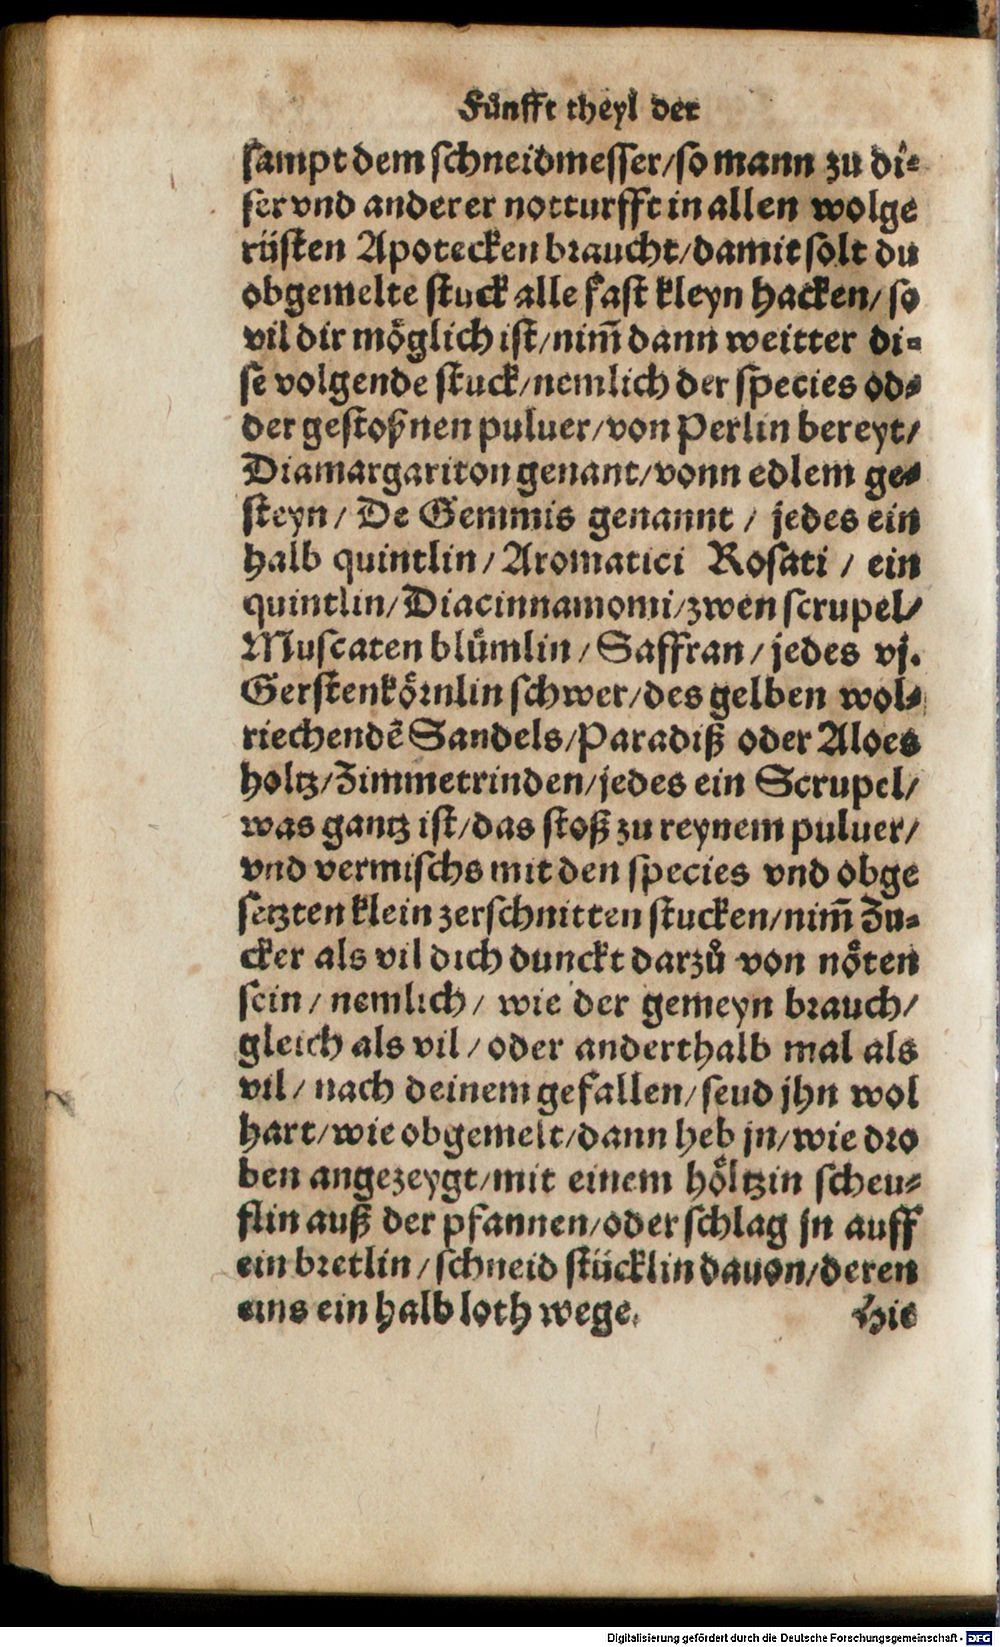 Fuͤnfft theyl der
ſampt dem ſchneidmeſſer/ſo mann zu di⸗
ſer vnd anderer notturfft in allen wolge
rüſten Apotecken braucht/damit ſolt du
obgemelte ſtuck alle faſt kleyn hacken/ ſo
vil dir moͤglich iſt/nim̃ dann weitter di⸗
ſe volgende ſtuck/nemlich der ſpecies od⸗
der geſtoßnen puluer/von Perlin bereyt/
Diamargariton genant/vonn edlem ge⸗
ſteyn/ De Gemmis genannt / jedes ein
halb quintlin/ Aromatici Roſati / ein
quintlin/Diacinnamomi/zwen ſcrupel/
Muſcaten bluͤmlin/ Saffran/ jedes vj.
Gerſtenkoͤrnlin ſchwer/des gelben wol⸗
riechendẽ Sandels/Paradiß oder Aloes
holtz/Zimmetrinden/jedes ein Scrupel/
was gantz iſt/das ſtoß zu reynem puluer/
vnd vermiſchs mit den ſpecies vnd obge
ſetzten klein zerſchnitten ſtucken/nim̃ Zu⸗
cker als vil dich dunckt darzů von noͤten
ſein/ nemlich/ wie der gemeyn brauch/
gleich als vil/ oder anderthalb mal als
vil/ nach deinem gefallen/ſeud jhn wol
hart/wie obgemelt/dann heb jn/wie dro
ben angezeygt/mit einem hoͤltzin ſcheu⸗
flin auß der pfannen/oder ſchlag jn auff
ein bretlin/ ſchneid ſtücklin dauon/deren
eins ein halb loth wege. Hie
Digitalisierung gefördert durch die Deutsche Forschungsgemeinschaft - DFG